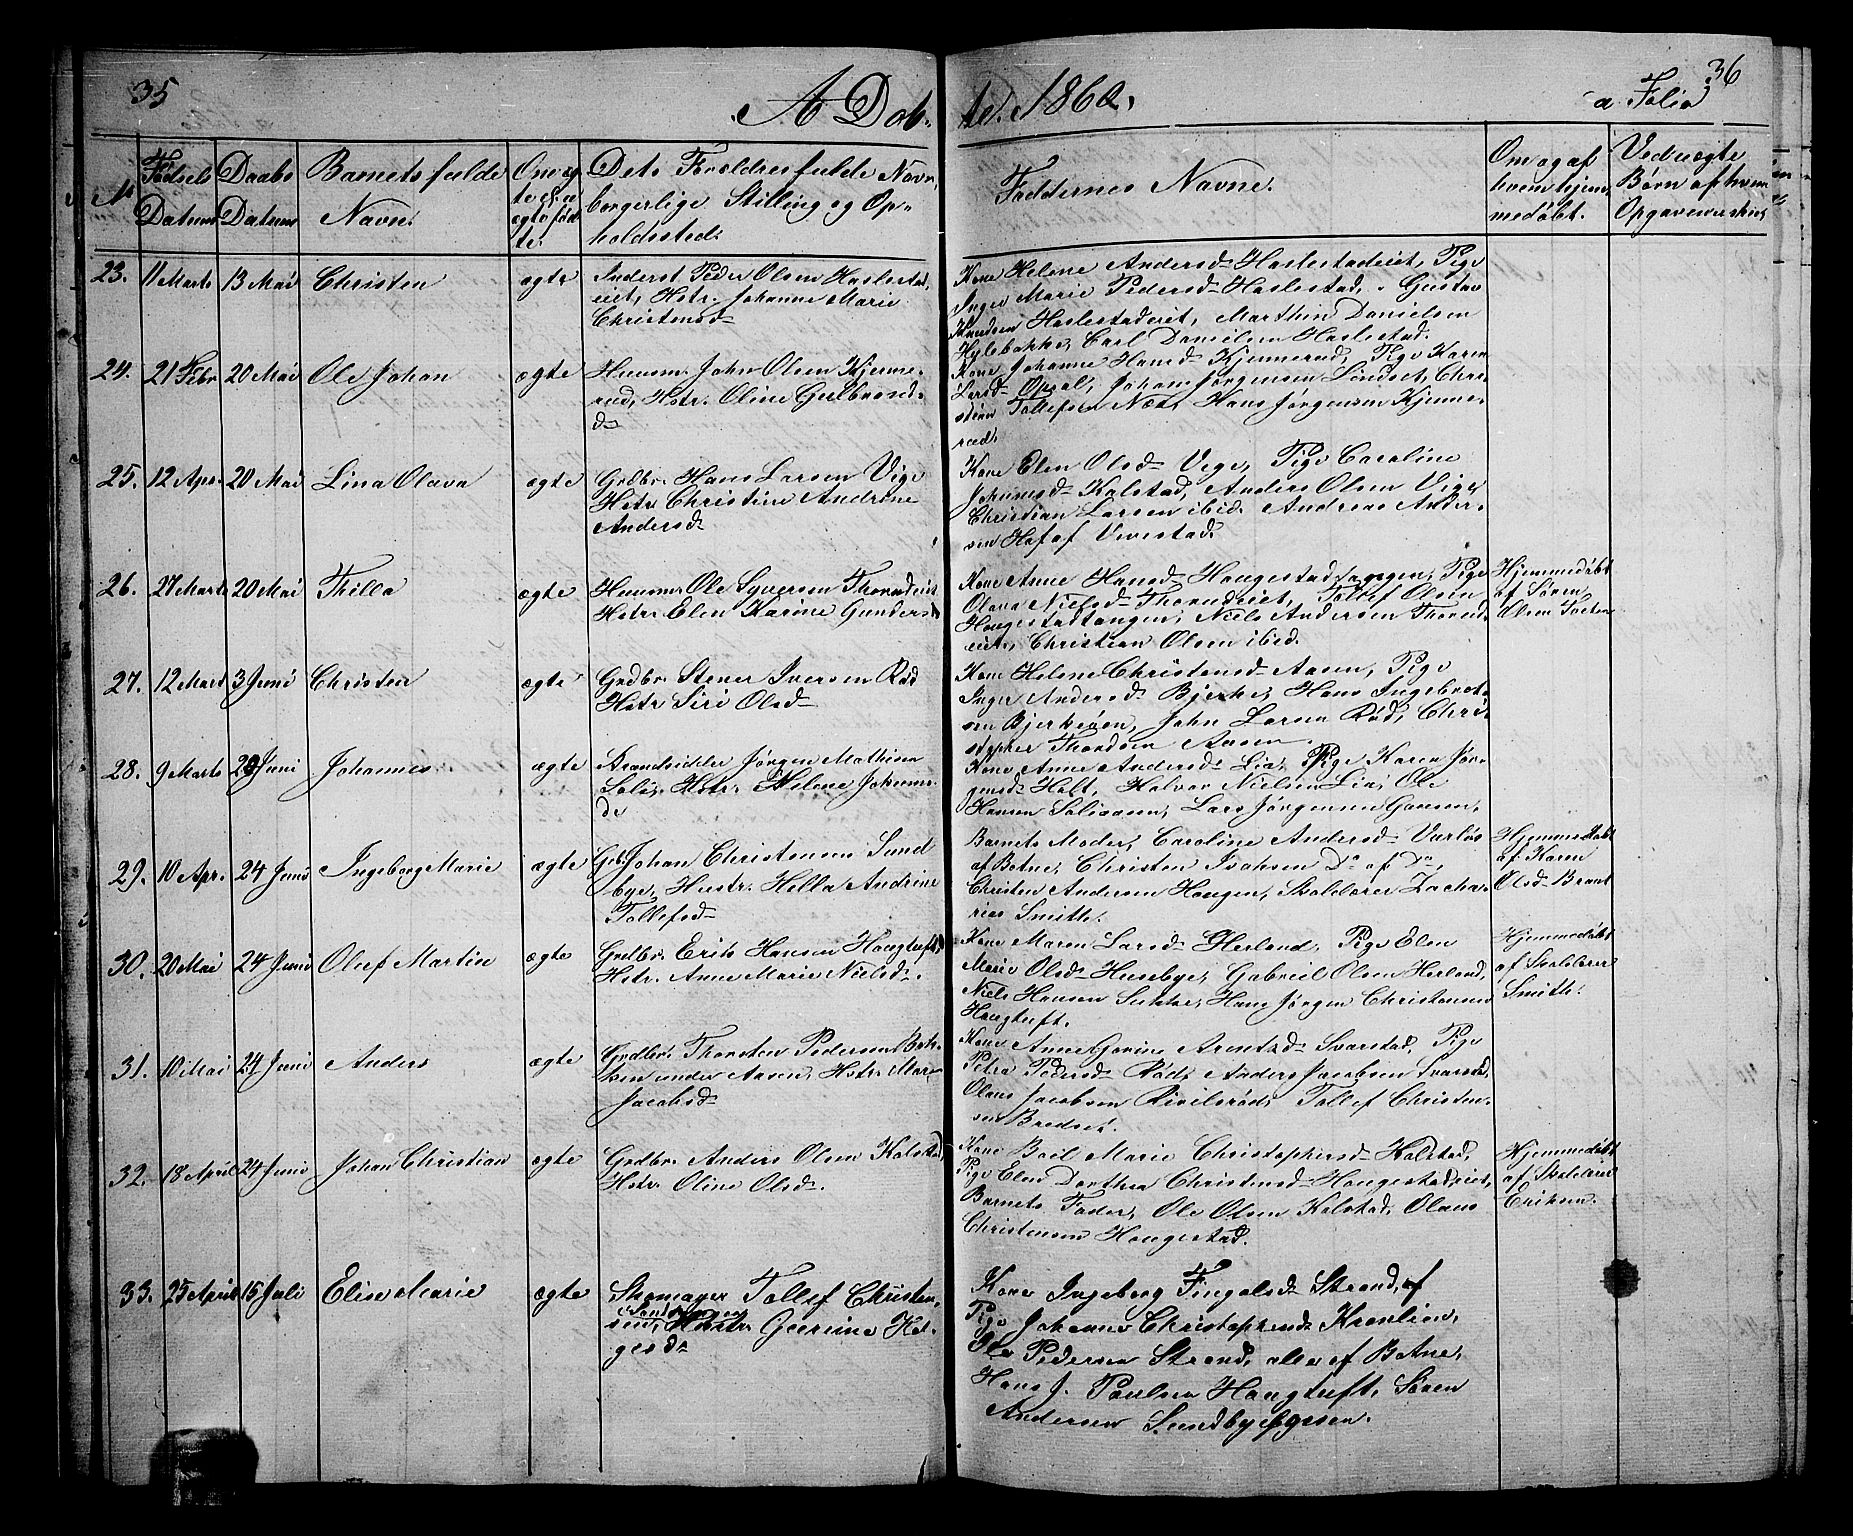 35
A Døb-
te. 1860.
a Folio
36
No
Fødsels Datum
Daabs Datum
Barnets fulde Navn.
Om ægte el. uægte fødte.
Dets Forældres fulde Navn, borgerlige Stilling og Opholdssted.
Faddernes Navne.
Om og af hvem hjemmedøbt.
Ved uægte Børn af hvem
23. 11 Marts 13 Mai Christen ægte Inderst Peder Olsen Haslestad-
eiet, Hstr. Johanne Marie
Christensd
Kone Helene Andersd Haslestadeiet, Pige
Inger Marie Pedersd Haslestad, Gustav
Knudsen Haslestadeiet, Marthin Danielsen
Hylebakke, Carl Danielsen Haslestad.
24. 21 Febr 20 Mai Ole Johan ægte Huusm. John Olsen Kjenne-
rud, Hstr. Oline Gulbrandsd
Kone Johanne Hansd Kjennerud, Pige Karen
Larsd Opsal, Johan Jørgensen Lindset, Chri-
stian Tollefsen Næs, Hans Jørgensen Kjenne-
rud.
25. 12 Apr. 20 Mai Lina Olava ægte Grdbr. Hans Larsen Vige
Hstr. Christine Andrine
Andersd
Kone Elen Olsd Vege, Pige Caroline
Johansd Kalstad, Anders Olsen Vige,
Christian Larsen ibid. Andreas Ander-
sen Hof af Vivestad.
26. 27 Marts 20 Mai Thilla ægte Huusm. Ole Syversen Thorudeiet
Hstr. Elen Karine Gundersd
Kone Anne Hansd Haugestadtangen, Pige
Olava Nielsd Thorudeiet, Tollef Olsen
Haugestadtangen, Niels Andersen Thorud-
eiet, Christian Olsen ibid.
Hjemmedøbt
af Søren
Olsen
27. 12 Mart 3 Juni Christen ægte Grdbr. Stener Iversen Rød
Hstr. Siri Olsd
Kone Helene Christensd Aasen, Pige
Inger Andersd Bjerke, Hans Ingebret-
sen Bjerkeøen, John Larsen Rød, Chri-
stopher Thordsen Aasen.
28. 9 Marts 20 Juni Johannes ægte Strandsidder Jørgen Mathisen
Solie, Hstr. Helene Johannes-
de
Kone Anne Andersd Lia, Pige Karen Jør-
gensd Holt, Halvor Nielsen Lia, Ole
Hansen Solieaasen, Lars Jørgensen
29. 10 Apr. 24 Juni Ingeborg Marie ægte Johan Christensen Sund-
bye, Hustr. Hella Andrine
Tollefsd
Barnets Moder, Caroline Andersd Varløs
af Botne, Christen Isaksen Do af Do,
Christen Andersen Haugen, Skolelærer Zacha-
rias Smith.
Hjemmedøbt
af Karen
Olsd
30. 20 Mai 24 Juni Oluf Martin ægte Grdbr. Erik Hansen Haugtuft,
Hstr. Anne Marie Nielsd.
Kone Maren Larsd Herland, Pige Elen
Marie Olsd Husebye, Gabriel Olsen Herland,
Niels Hansen Sukke, Hans Jørgen Christensen
Haugtuft.
Hjemmedøbt
af Skolelærer
Smith.
31. 10 Mai 24 Juni Anders ægte Grdbr. Thorsten Pedersen Bak-
ken under Aasen, Hstr. Maren
Jacobsd
Kone Anne Gurine Arentsd Svarstad, Pige
Petra Pedersd Rød, Anders Jacobsen Svarstad,
Olaus Jacobsen Rivilsrød, Tollef Christen-
sen Bredset.
32. 18 April 24 Juni Johan Christian ægte Grdbr. Anders Olsen Kolstad,
Hstr. Oline Olsd.
Kone Boel Marie Christophersd Kolstad,
Pige Elen Dorthea Christensd Haugestadeiet,
Barnets Fader, Ole Olsen Kolstad, Olaus
Christensen Haugestad.
Hjemmedøbt
af Skolelærer
Eriksen.
33. 25 April 15 Juli Elise Marie ægte Skomager Tollef Christen-
sen, Hustr. Gurine Hel-
gesd
Kone Ingeborg Fingalsd Strand, af
Pige Johanne Christophersd Kronlien,
Ole Pedersen Strand, alle af Botne,
Hans J. Paulsen Haugtuft, Søren
Andersen